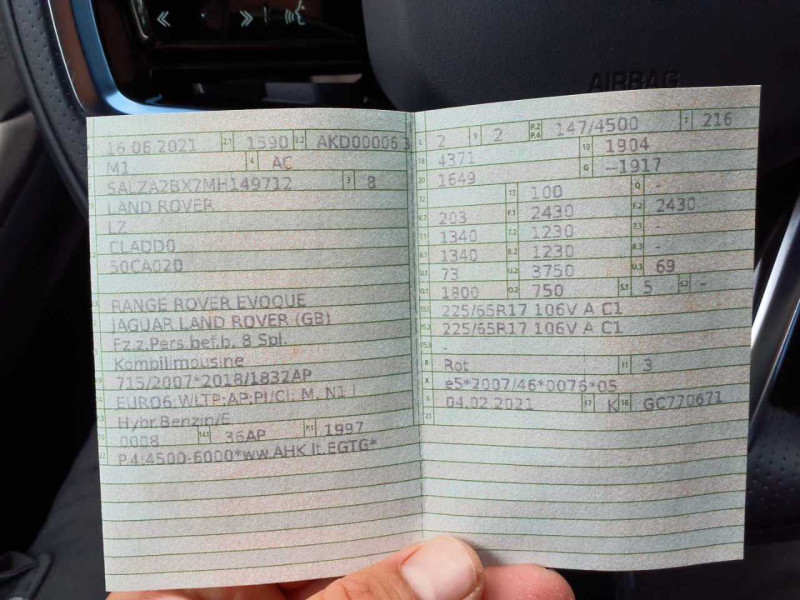 AIRBAG
16.06.2021 2.1 1590 2.2 AKD00006 3
M1 4 AC
SALZA2BX7MH149712 3 8
LAND ROVER
LZ
CLADD0
50CA020
RANGE ROVER EVOQUE
JAGUAR LAND ROVER (GB)
Fz.z.Pers.bef.b. 8 Spl.
Kombilimousine
715/2007*2018/1832AP
EURO6;WLTP;AP;PI/CI; M, N1 I
Hybr.Benzin/E
0008 14.1 36AP P.1 1997
P.4:4500-6000*ww.AHK lt.EGTG*
L 2 9 2 P.2 P.4 147/4500 T 216
18 4371 19 1904
20 1649 G —1917
12 - 13 100 Q -
V.7 203 F.1 2430 F.2 2430
7.1 1340 7.2 1230 7.3 -
8.1 1340 8.2 1230 8.3 -
U.1 73 U.2 3750 U.3 69
O.1 1800 O.2 750 S.1 5 S.2 -
15.1 225/65R17 106V A C1
15.2 225/65R17 106V A C1
15.3 -
R Rot 11 3
K e5*2007/46*0076*05
6 04.02.2021 17 K 16 GC770671
21